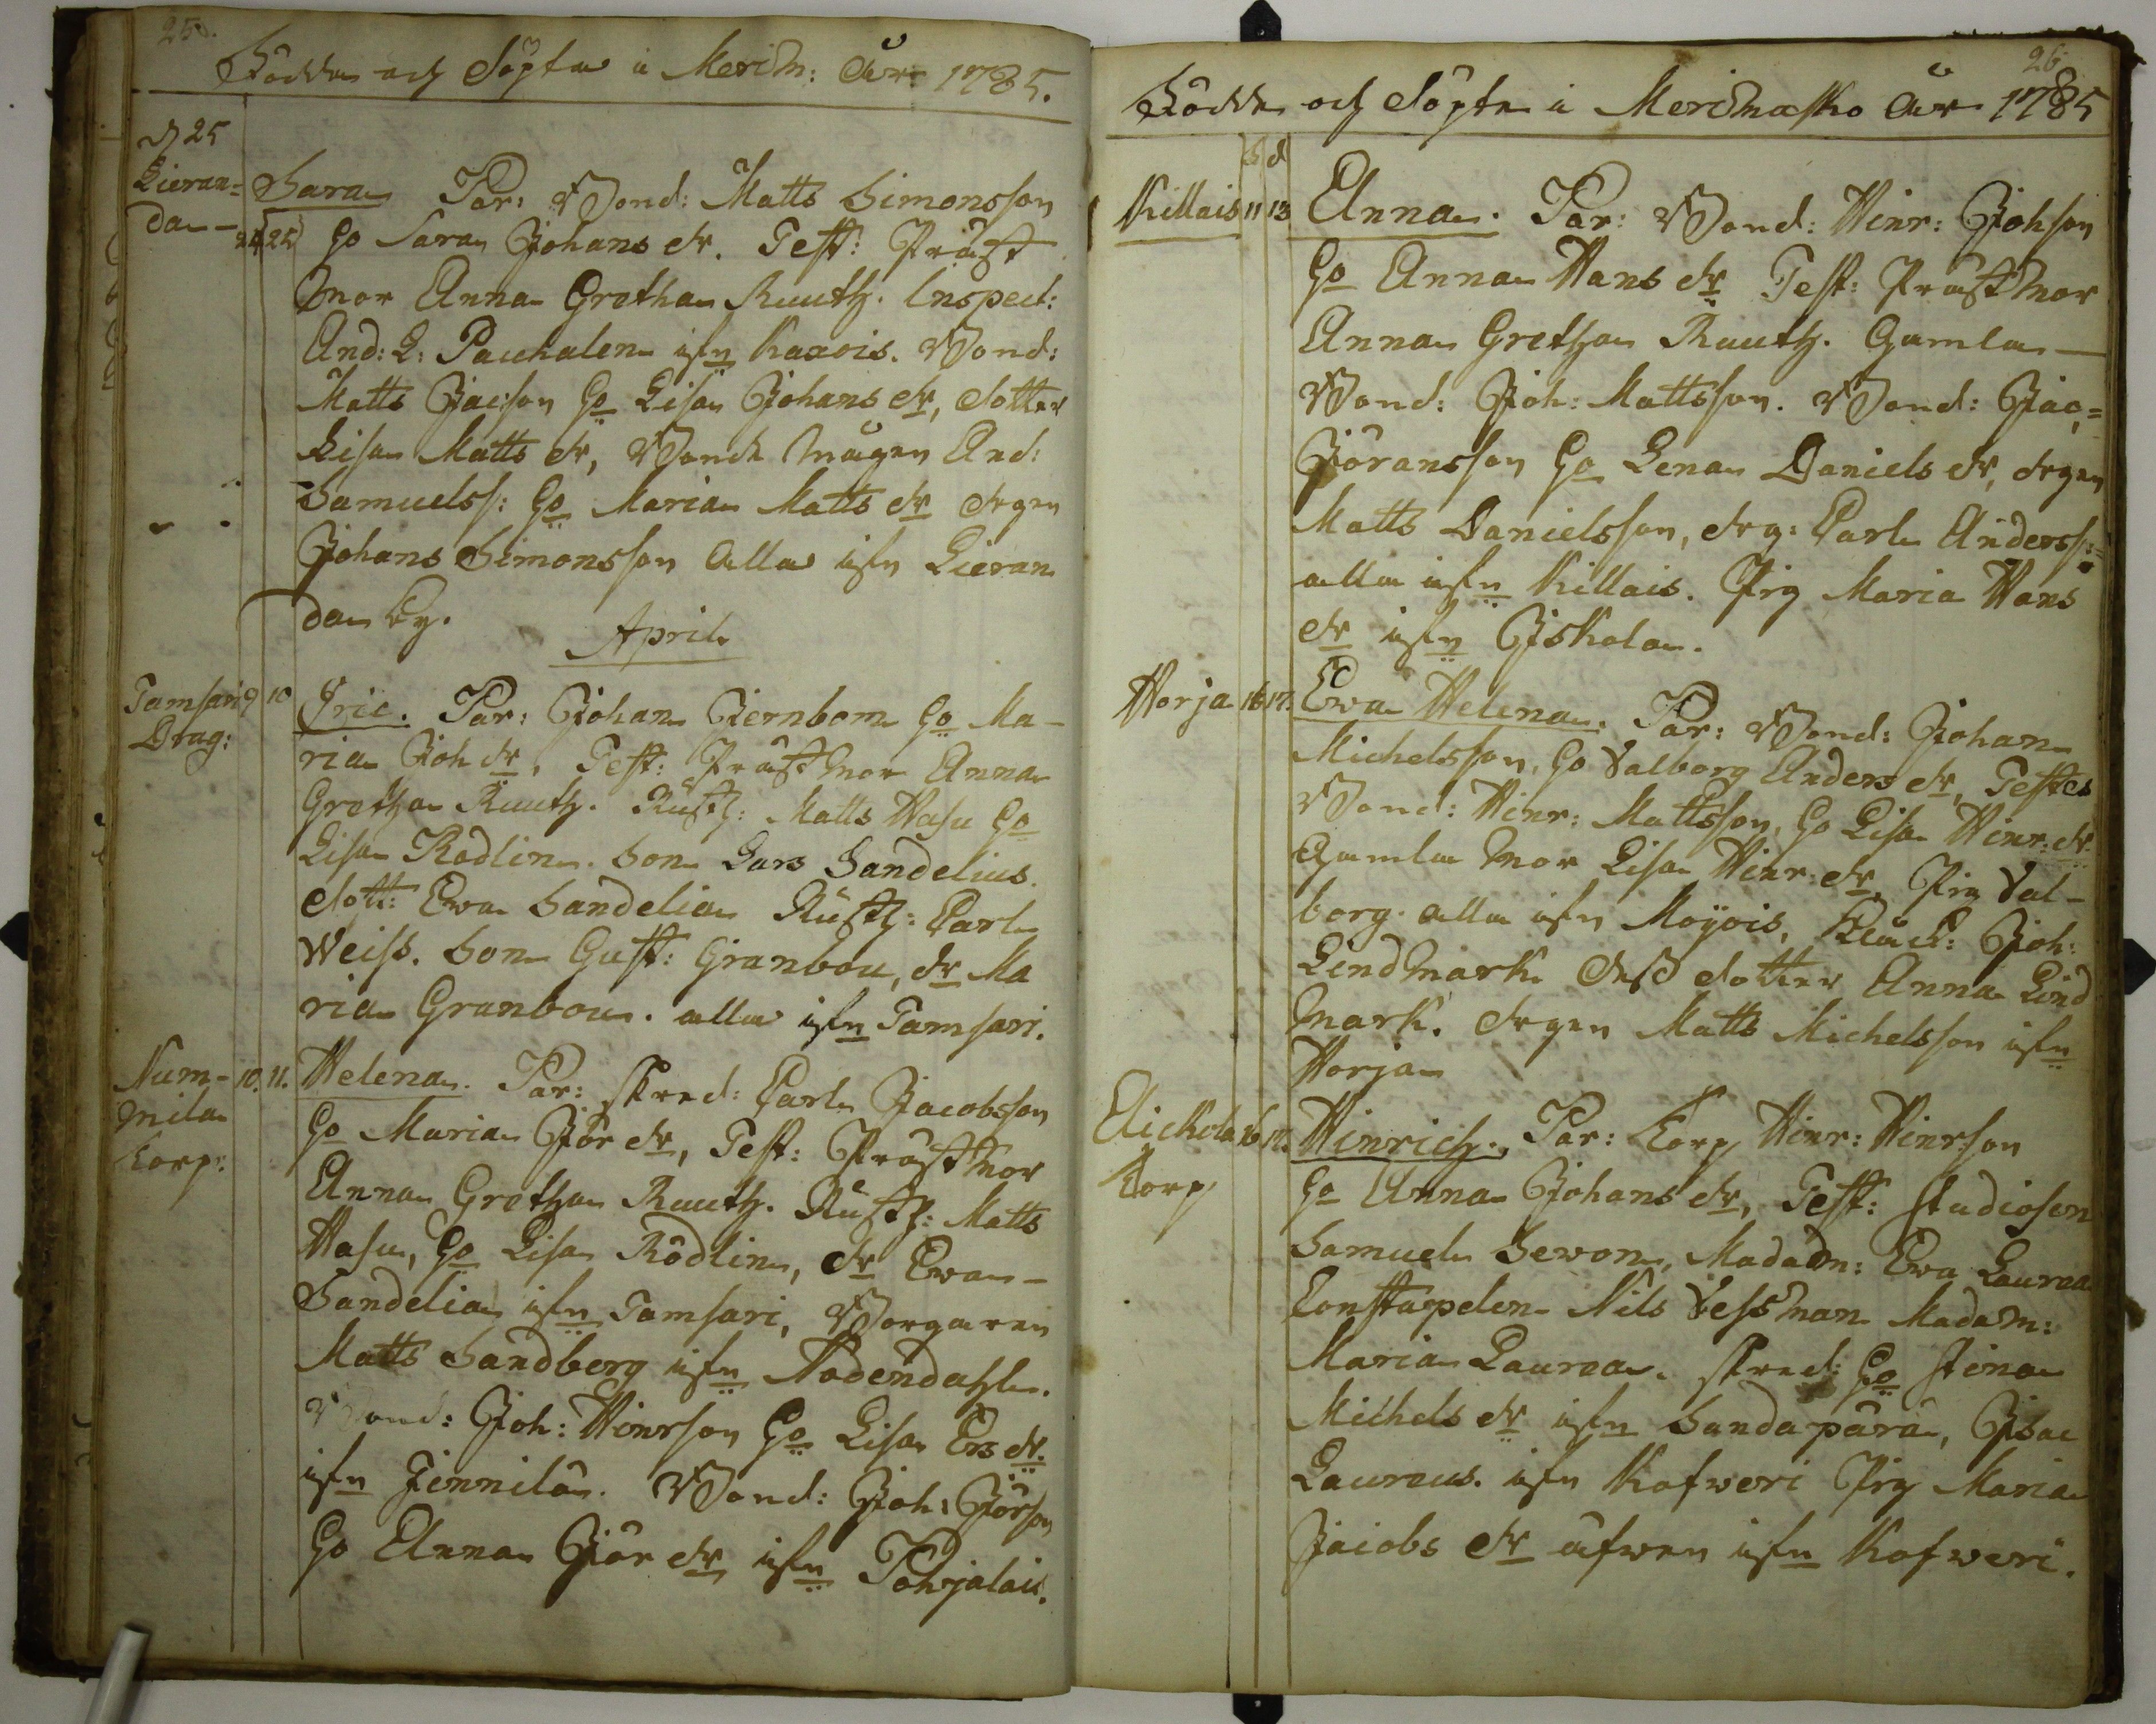 25.
Födde och Döpte i Merim: Åhr 1785.
d 25
Lieran=
da
24 25
Sara Par: Bond: Matts Simonsson
Ho Sara Johans dr. Test: Präst
mor Anna Gretha Ruuth. Inspect:
And: L: Pacchalen ifrn Kaxois. Bond:
Matts Jacson Ho Lisa Johans dr, dotter
Lisa Matts dr, Bonde mågen And:
Samuelss: Ho Maria Matts dr drgen
Johans Simonsson alla ifrn Lieran
da by.
April
Tamsari 9 10
Drag:
Eric. Par: Johan Jernbom Ho Ma-
ria Joh dr, Test: Prästmor Anna
Gretha Ruuth. Rusth: Matts Wasu Ho
Lisa Rodlin. Son Lars Sandelius.
dott: Ewa Sandelia Rusth: Carl
Weiss. Son Gust: Granbou, dr Ma
ria Granbou. alla ifrn Tamsari.
Num- 10. 11.
mila
Torp:
Helena. Par: Skred: Carl Jacobsson
Ho Maria Jör dr, Test: Prästmor
Anna Gretha Ruuth. Rusth: Matts
Wasu, Ho Lisa Rodlin, dr Ewa
Sandelia ifrn Tamsari, Borgaren
Matts Sandberg ifrn Nodendahl.
Bond: Joh: Hinrson Ho Lisa Ers dr.
ifrn Jinnilä. Bond: Joh: Jörson
Ho Anna Jör dr ifrn Pohjalais.
26
Födde och Döpte i Merimasko Åhr 1785
f d
Killais 11 13
Anna. Par: Bond: Hinr: Johson
Ho Anna Hans dr Test: Prästmor
Anna Gretha Ruuth. Gamla
Bond: Joh: Mattsson. Bond: Jac:
Jöransson Ho Lena Daniels dr, drgen
Matts Danielsson, drg: Carl Anderss:
alla ifrn Killais. Pig Maria Hans
dr ifrn Iskola.
Horja 16 17.
Ewa Helena. Par: Bond: Johan
Michelsson, Ho Valborg Anders dr, Testes
Bond: Hinr: Mattsson, Ho Lisa Hinr: dr.
Gamla mor Lisa Hinr: dr, Pig Val-
borg. alla ifrn Moÿois, Joh:
Lindmark dess dotter Anna Lind
mark. drgen Matts Michelsson ifrn
Horja
Eickola 16 17.
Torp
Hinrich. Par: Torp Hinr: Hinrson
Ho Anna Johans dr, Test: studiosen
Samuel Sewon, Madam: Ewa Laurea
Constapelen Nils Vessman Madam:
Maria Laurea. Skred: Ho Stina
Michels dr ifrn Sandapära, Isac
Laureus. ifrn Kofweri Pig Maria
Jacobs dr äfwen ifrn Kofweri.